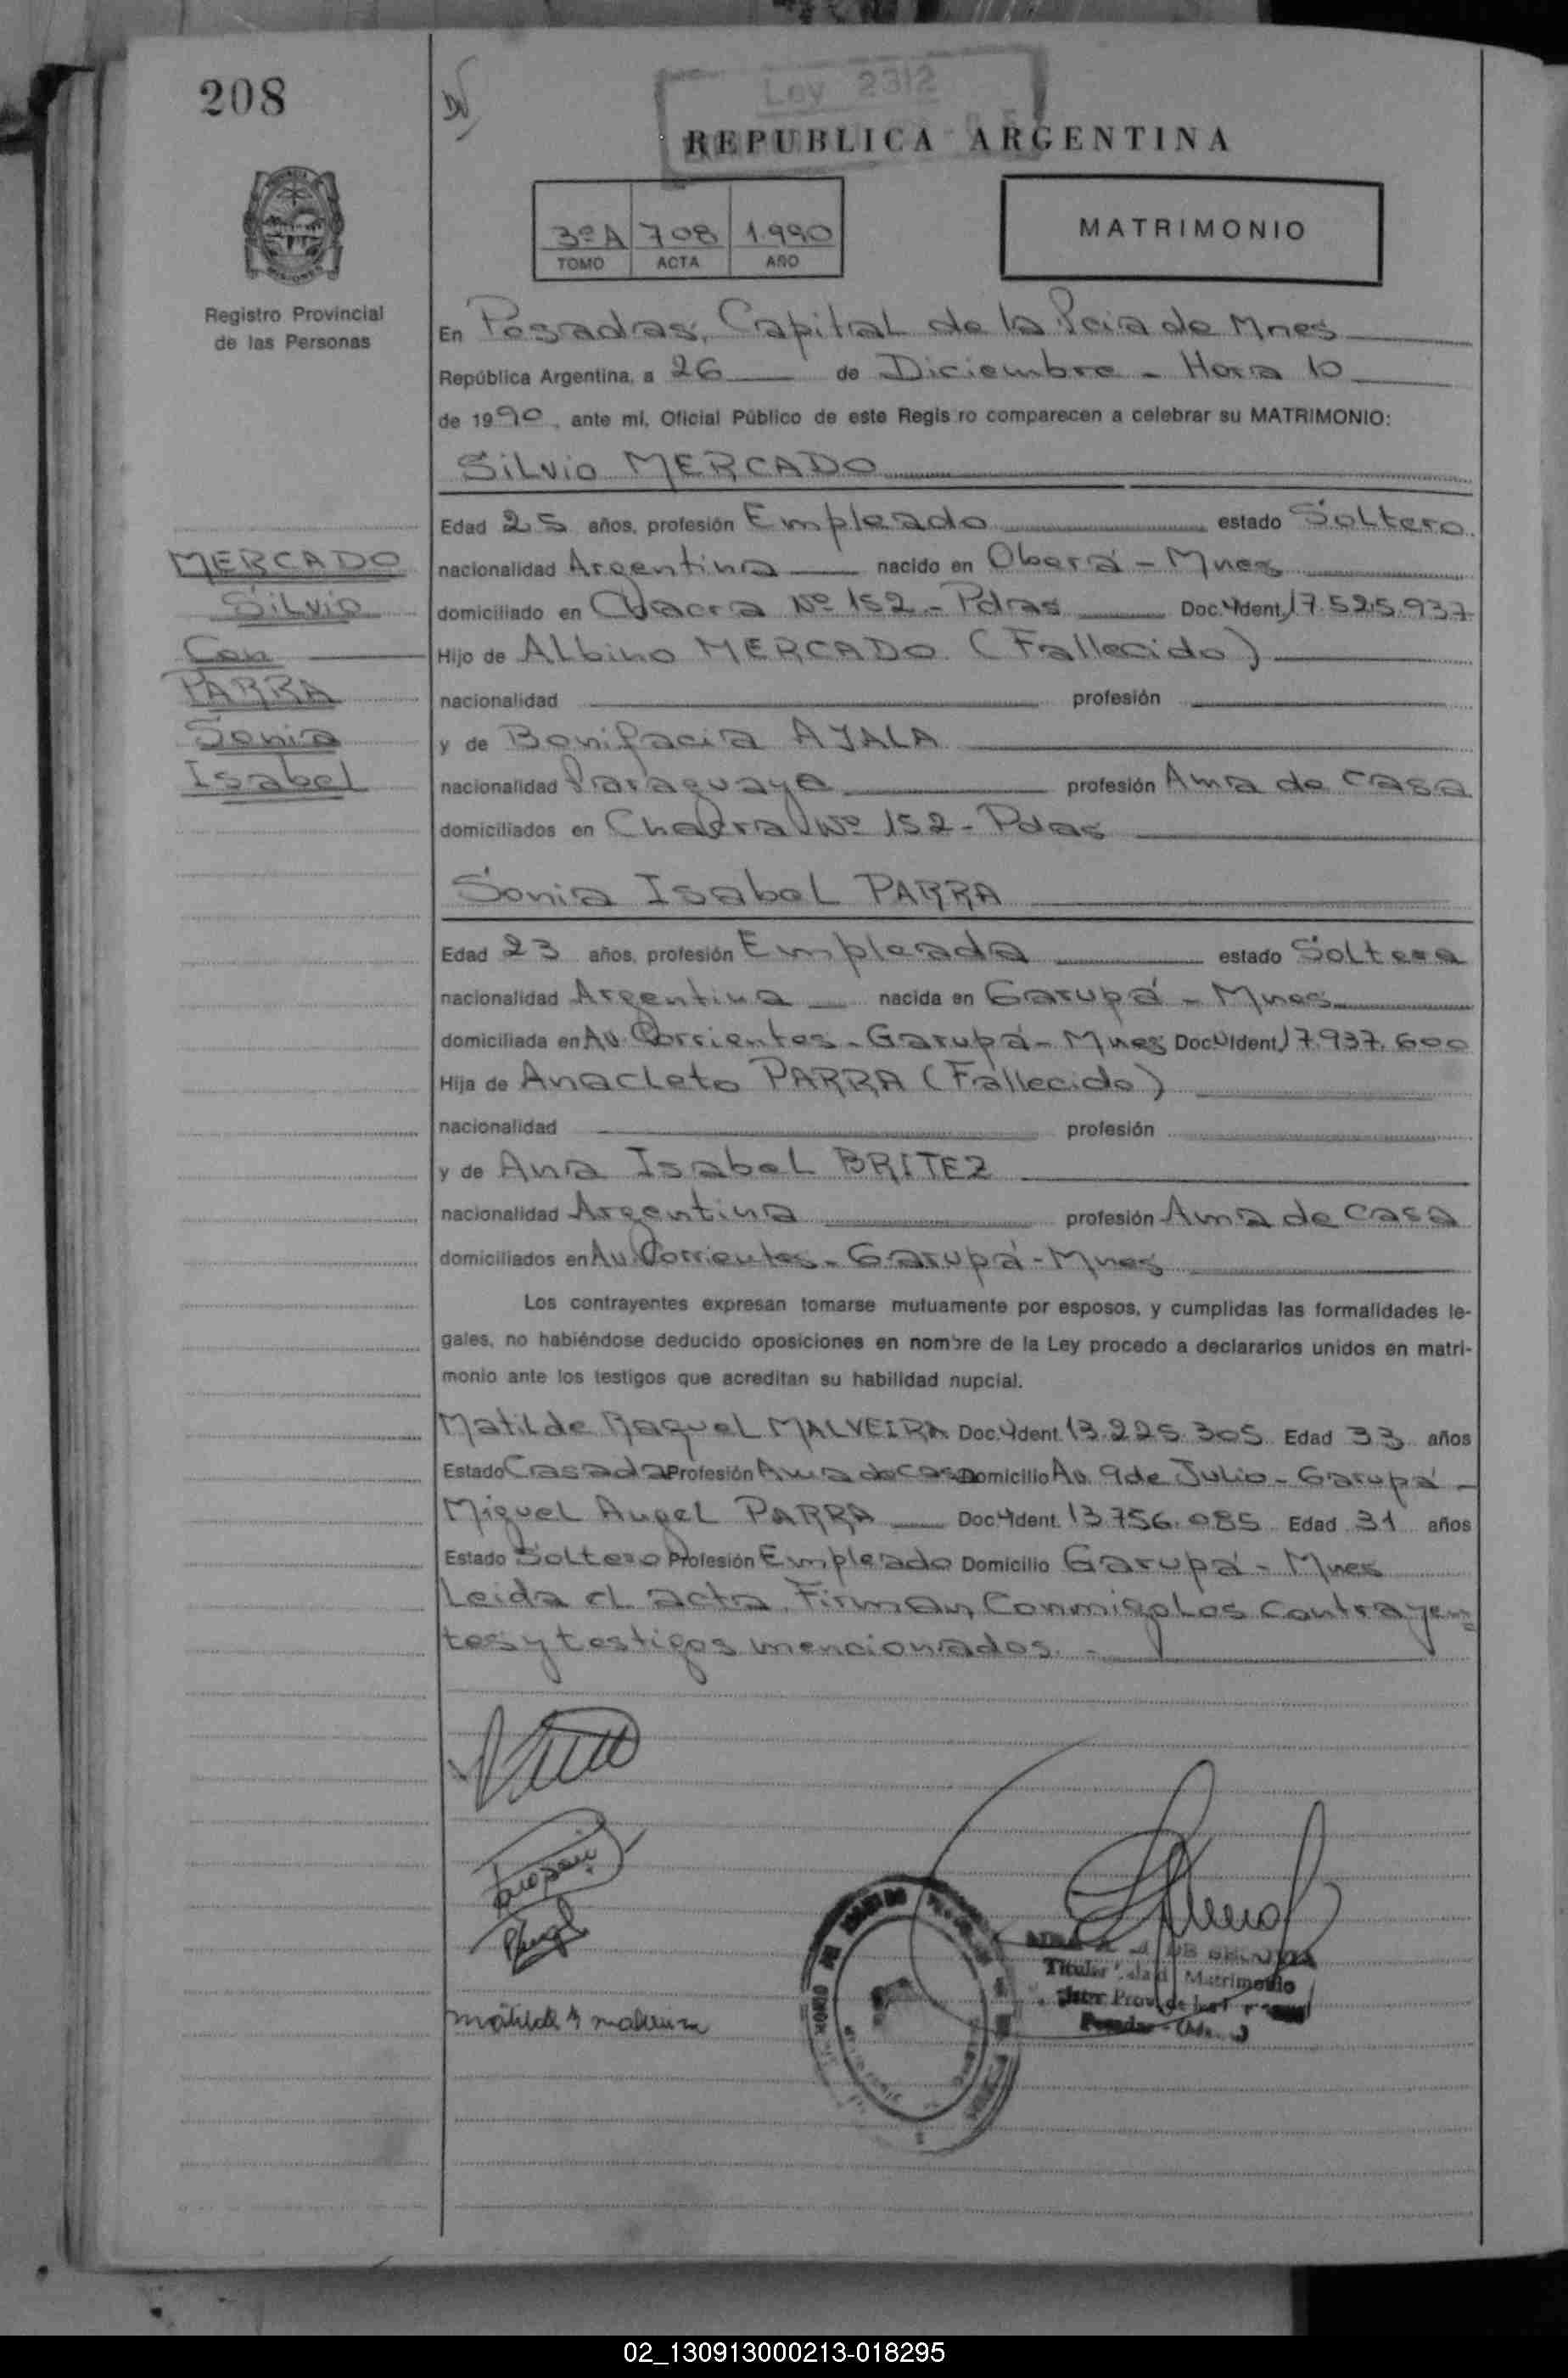 208
Ley 2312
REPUBLICA ARGENTINA
3ºA 708 1.990
TOMO ACTA AÑO
MATRIMONIO
Registro Provincial
de las Personas
En Posadas, Capital de la Pcia de Mnes
República Argentina, a 26 de Diciembre - Hora 10
de 1990, ante mi, Oficial Público de este Regis ro comparecen a celebrar su MATRIMONIO:
Silvio MERCADO
Edad 25 años, profesión Empleado estado Soltero
MERCADO
Silvio
Con
PARRA
Sonia
Isabel
nacionalidad Argentina nacido en Oberá - Mnes
domiciliado en Chacra Nº 152 - Pdas Doc. Ident. 17.525.937
Hijo de Albino MERCADO (Fallecido)
nacionalidad profesión
y de Bonifacia AYALA
nacionalidad Paraguaya profesión Ama de casa
domiciliados en Chacra Nº 152 - Pdas
Sonia Isabel PARRA
Edad 23 años, profesión Empleada estado Soltera
nacionalidad Argentina nacida en Garupá - Mnes
domiciliada en Av. Corrientes - Garupá - Mnes Doc. Ident. 17.937.600
Hija de Anacleto PARRA (Fallecido)
nacionalidad profesión
y de Ana Isabel BRITEZ
nacionalidad Argentina profesión Ama de casa
domiciliados en Av. Corrientes - Garupá - Mnes
Los contrayentes expresan tomarse mutuamente por esposos, y cumplidas las formalidades le-
gales, no habiéndose deducido oposiciones en nombre de la Ley procedo a declararlos unidos en matri-
monio ante los testigos que acreditan su habilidad nupcial.
Matilde Raquel MALVEIRA Doc. Ident. 13.225.305 Edad 33 años
Estado Casada Profesión Ama de casa Domicilio Av. 9 de Julio - Garupá -
Miguel Angel PARRA Doc. Ident. 13.756.085 Edad 31 años
Estado Soltero Profesión Empleado Domicilio Garupá - Mnes
Leida el acta, Firman Conmigo Los contrayen=
tes y testigos mencionados. -
Titular Matrimonio
02_130913000213-018295